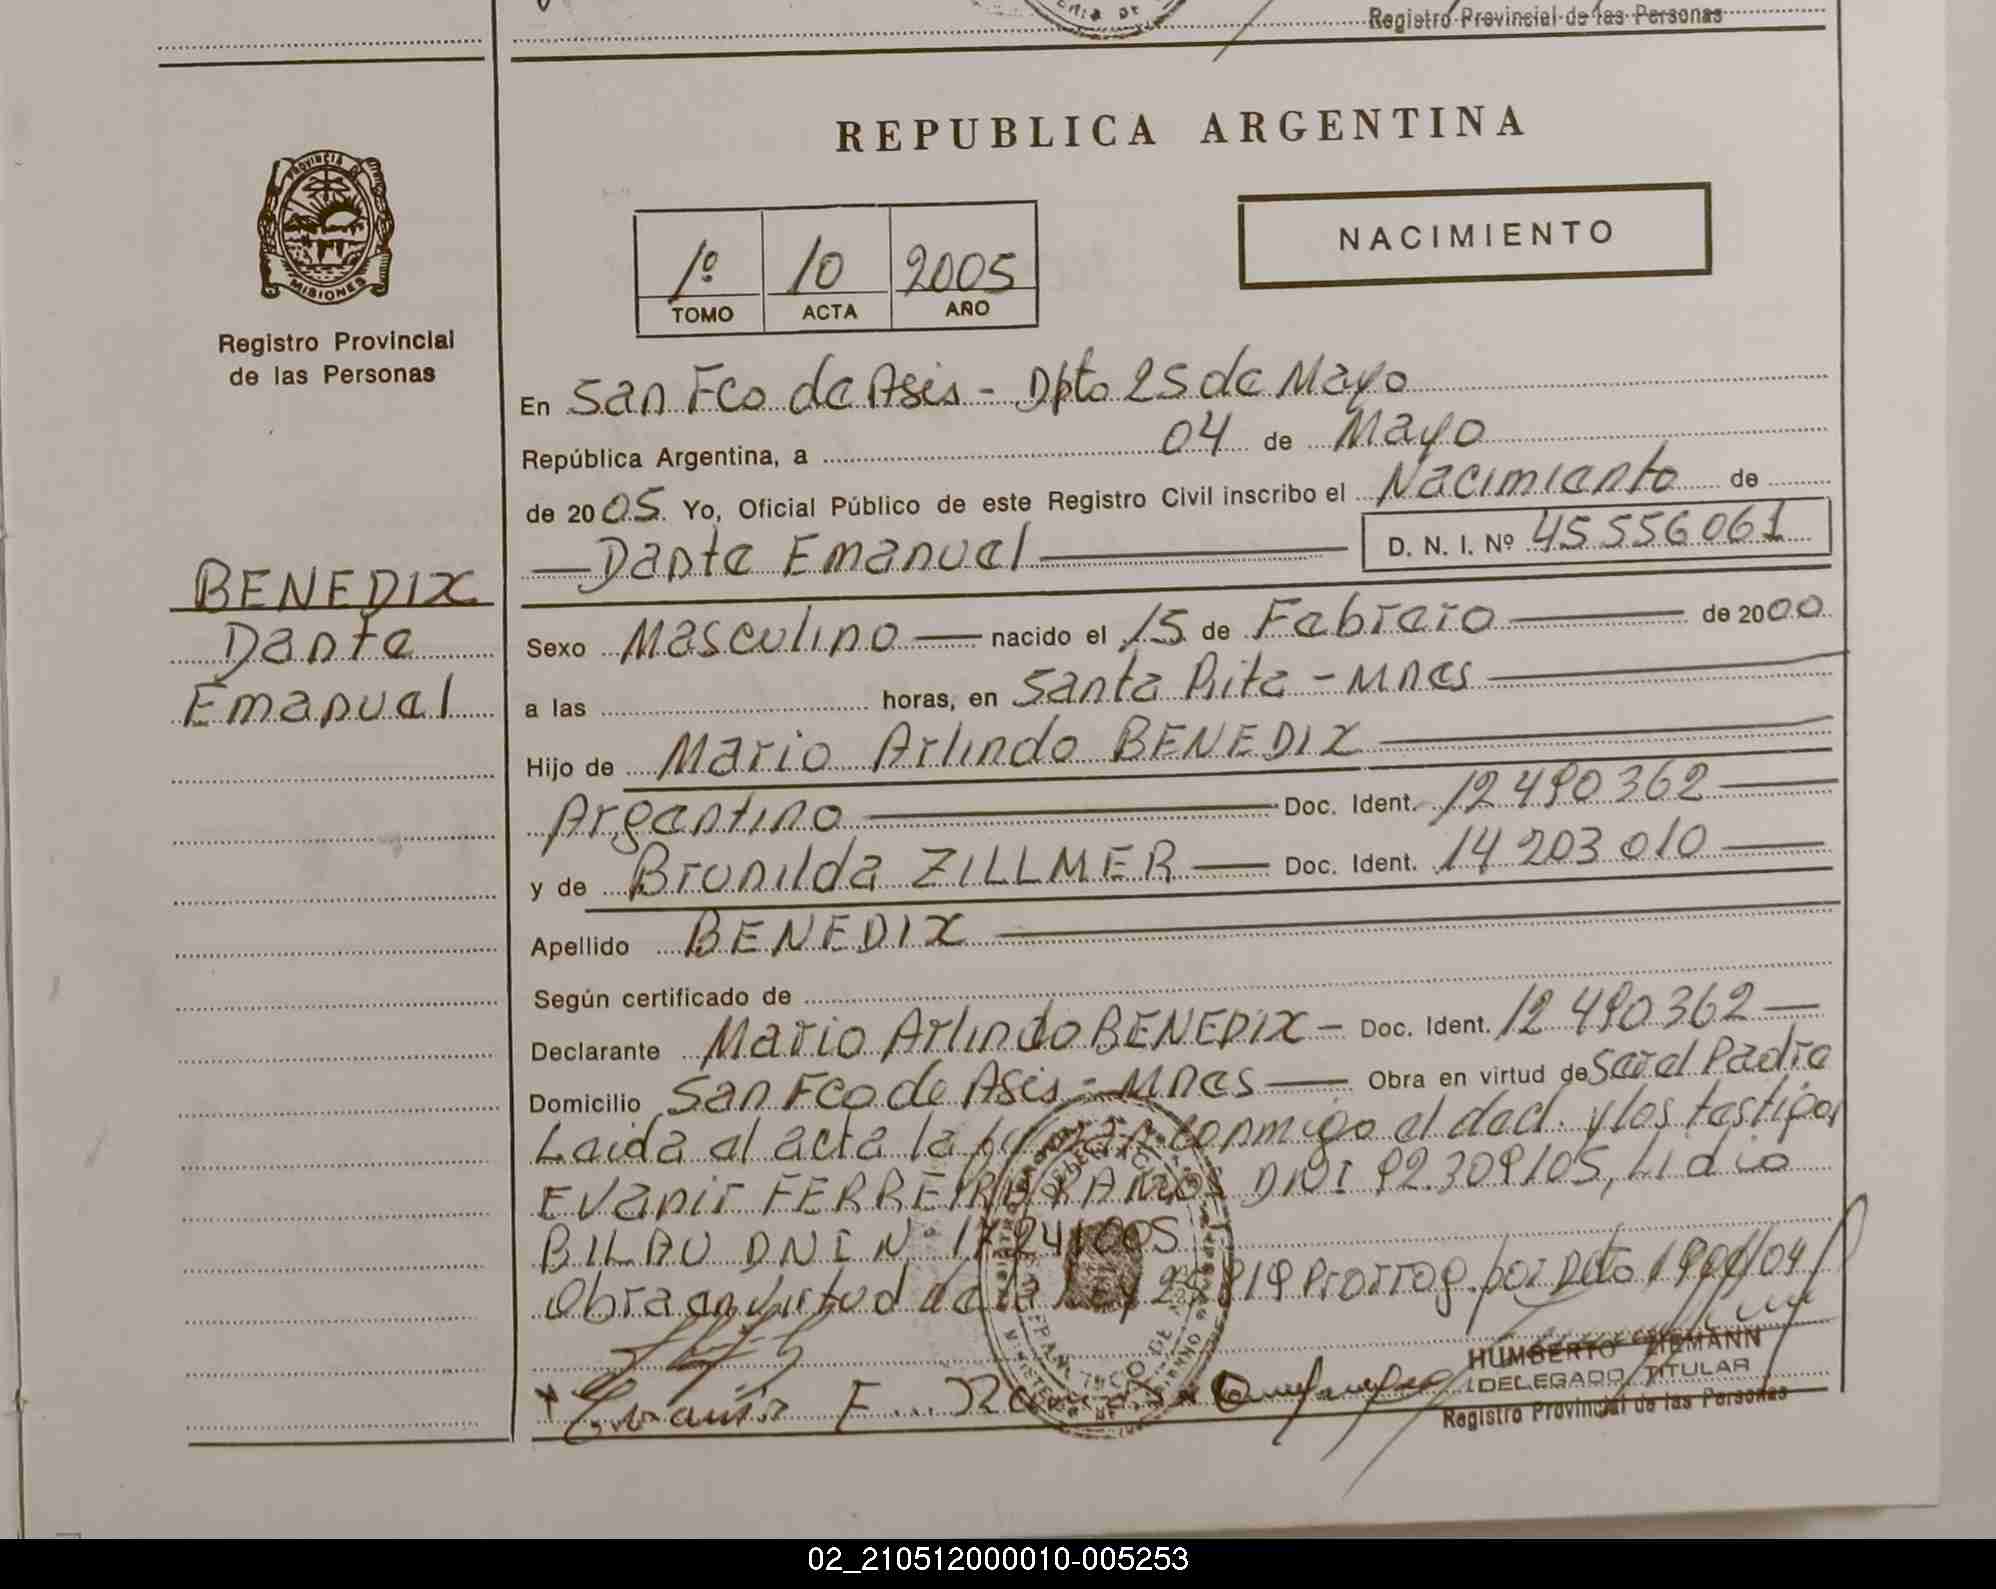 Registro Provincial de las Personas
REPUBLICA ARGENTINA
PROVINCIA DE
MISIONES
Registro Provincial
de las Personas
1º 10 2005
TOMO ACTA AÑO
NACIMIENTO
BENEDIX
Dante
Emanuel
En San Fco de Asis - Dpto 25 de Mayo
República Argentina, a 04 de Mayo
de 2005. Yo, Oficial Público de este Registro Civil inscribo el Nacimiento de
Dante Emanuel D. N. I. Nº 45556061
Sexo Masculino nacido el 15 de Febrero de 2000
a las horas, en Santa Rita - Mnes
Hijo de Mario Arlindo BENEDIX
Argentino Doc. Ident. 12490362
y de Brunilda ZILLMER Doc. Ident. 14203010
Apellido BENEDIX
Según certificado de
Declarante Mario Arlindo BENEDIX - Doc. Ident. 12490362
Domicilio San Fco de Asis - Mnes Obra en virtud de Ser el Padre
Leida el acta la conmigo el decl. y los testigos
Evanir FERREIRA RAMOS DNI 92.309105, Lidio
BILAU DNI N 17241005
Obra en virtud de la Ley 25819 Prorrog. por Dcto 1901/04
HUMBERTO ZIEMANN
DELEGADO TITULAR
Registro Provincial de las Personas
Evanir F. Ramos
02_210512000010-005253